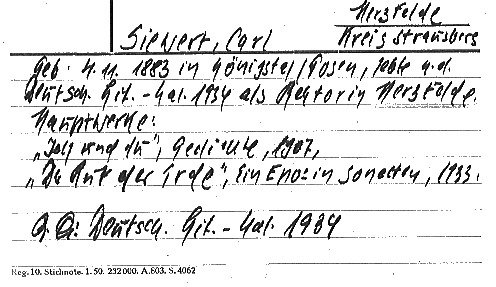 Herzfelde
Kreis Strausberg
Siewert, Carl
Geb. 4.11. 1883 in Königstal/Posen, lebte n.d.
Deutsch. Lit.-Kal. 1934 als Rektor in Herzfelde.
Hauptwerke:
„Ich und du", Gedichte, 1907,
„Der Ruf der Erde", Ein Epos in Sonetten, 1933.
Deutsch. Lit.-Kal. 1934
Reg. 10. Stichnote. 1. 50. 232000. A. 803. S. 4062